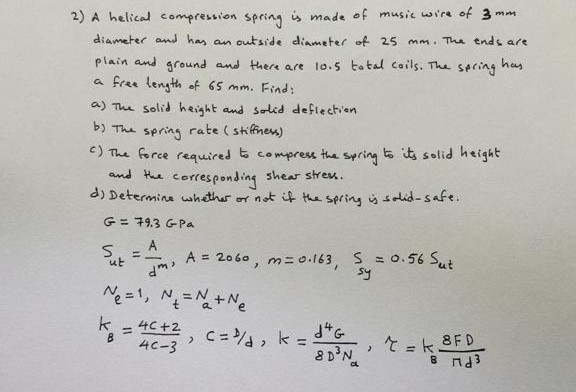 2) A helical compression spring is made of music wire of 3 mm
diameter and has an outside diameter of 25 mm. The ends are
plain and ground and there are 10.5 total coils. The spring has
a free length of 65 mm. Find:
a) The solid height and solid deflection
b) The spring rate (stiffness)
c) The force required to compress the spring to its solid height
and the corresponding shear stress.
d) Determine whether or not if the spring is solid-safe.
G = 79.3 GPa
S_ut = A/d^m, A = 2060, m = 0.163, S_sy = 0.56 S_ut
N_e = 1, N_t = N_a + N_e
k_B = (4C+2)/(4C-3), C = D/d, k = d^4G/(8D^3N_a), τ = k_B 8FD/(πd^3)